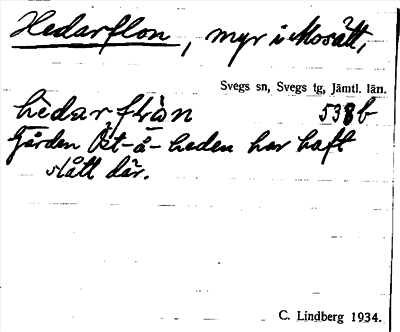 Hedarflon, myr i Mosätt,
Svegs sn, Svegs tg, Jämtl. län.
538b
Gården Öst-å-heden har haft
slått där.
C. Lindberg 1934.